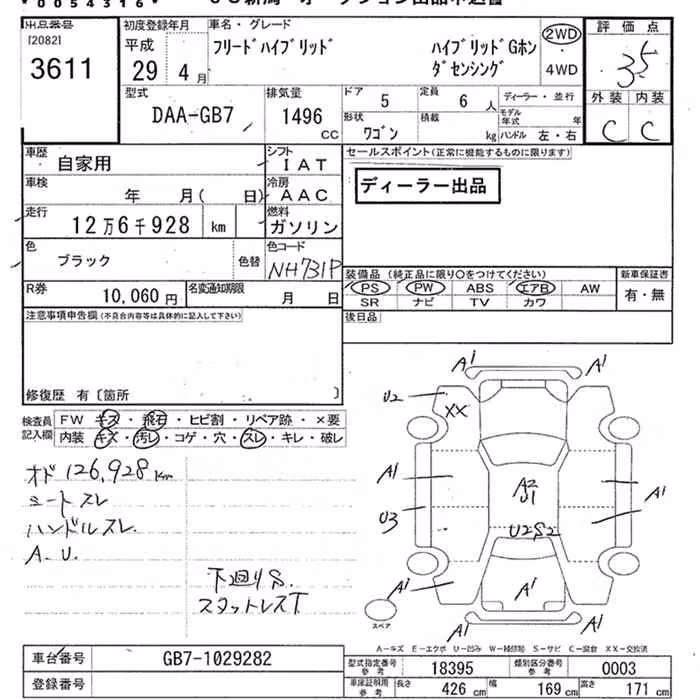 * 0 0 5 4 3 1 6 *
出品番号
[2082]
3611
初度登録年月
平成
29年 4月
車名・グレード
フリードハイブリッド
ハイブリッドGホン
ダセンシング
2WD
4WD
評価点
3.5
外装 内装
C C
型式
DAA-GB7
排気量
1496
CC
ドア 5
定員 6人
形状
ワゴン
積載
kg
ディーラー・並行
モデル年式 年
ハンドル 左・右
車歴
自家用
シフト
IAT
車検
年 月( 日)
冷房
AAC
走行
12万6千928 km
燃料
ガソリン
色
ブラック
色替
色コード
NH731P
R券
10,060円
名変通知期限
月 日
セールスポイント(正常に機能するものに限ります)
ディーラー出品
装備品(純正品に限り○をつけてください)
PS PW ABS エアB AW
SR ナビ TV カワ
新車保証書
有・無
後日品
注意事項申告欄(不具合内容等は具体的に記入して下さい)
修復歴 有〔箇所 〕
検査員記入欄
FW キズ・飛石・ヒビ割・リペア跡・×要
内装 キズ・汚レ・コゲ・穴・スレ・キレ・破レ
オド 126,928km
シートスレ
ハンドルスレ
A.U.
下回りS.
スタットレスT
A1 A1
U2
XX
A1
A2
U1
A1
U3
U2S2
A1 A1
A1
A1
スペア
A-キズ E-エクボ U-凹み W-補修跡 S-サビ C-腐食 XX-交換済
車台番号
GB7-1029282
登録番号
型式指定番号参考
18395
類別区分番号参考
0003
車庫証明用参考
長さ 426cm
幅 169cm
高さ 171cm